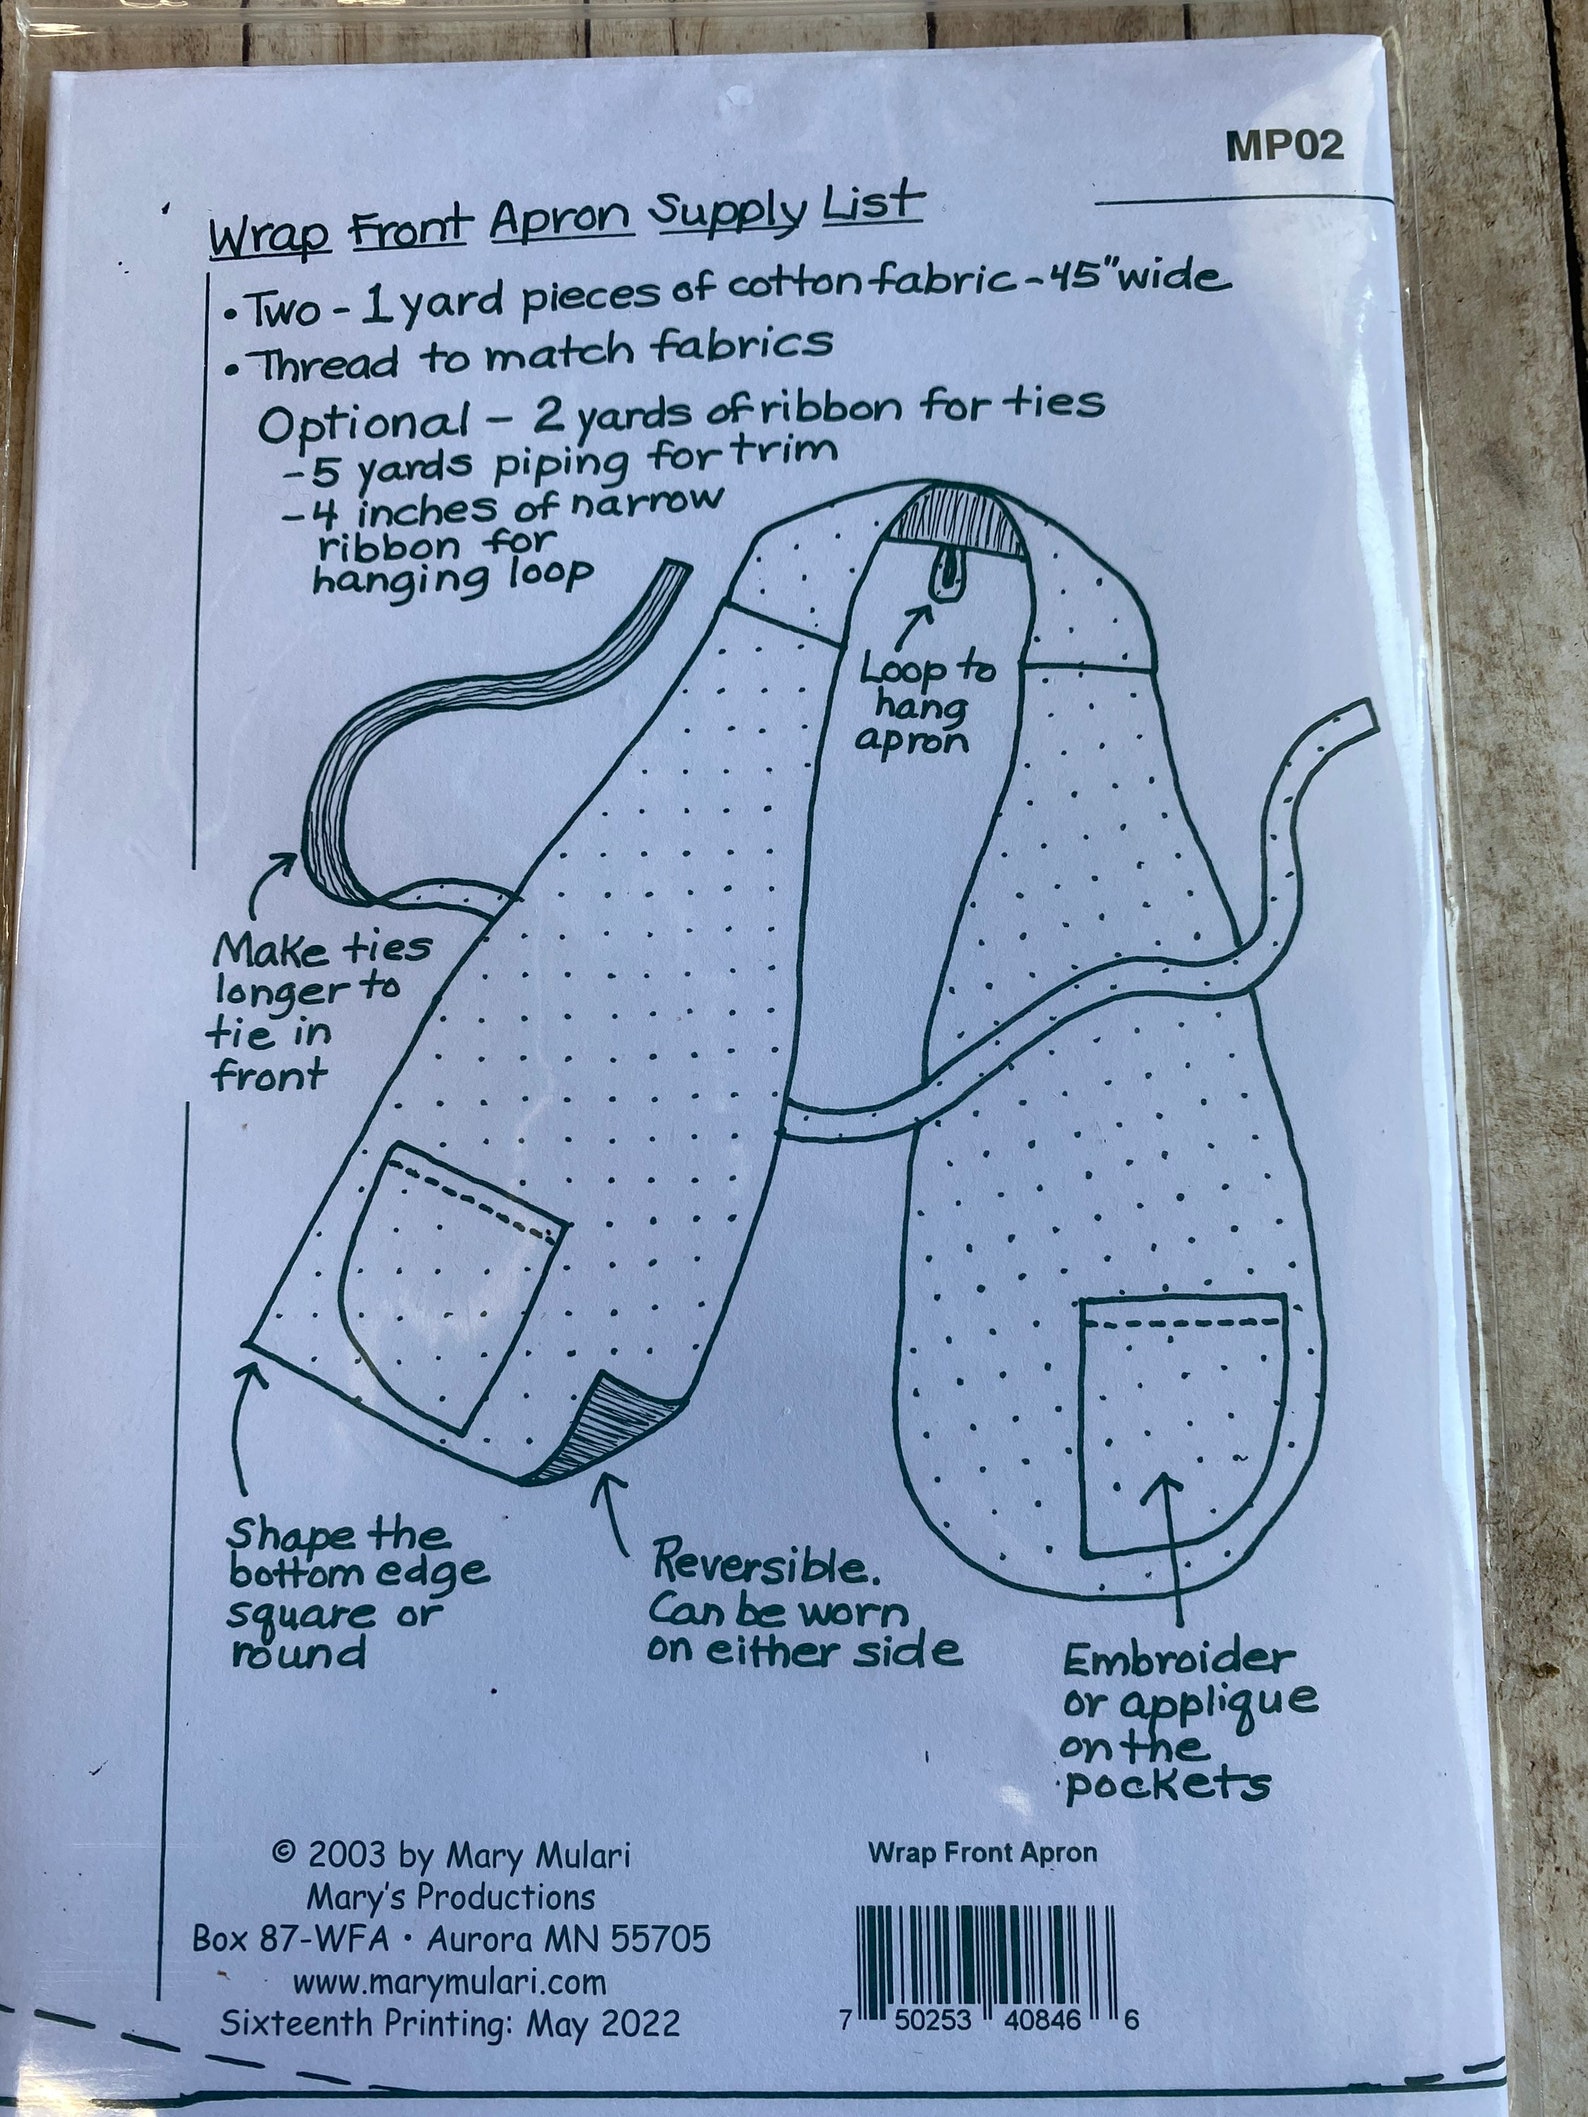 MP02
Wrap Front Apron Supply List
• Two - 1 yard pieces of cotton fabric - 45" wide
• Thread to match fabrics
Optional - 2 yards of ribbon for ties
- 5 yards piping for trim
- 4 inches of narrow
ribbon for
hanging loop
Loop to
hang
apron
Make ties
longer to
tie in
front
Shape the
bottom edge
square or
round
Reversible.
Can be worn
on either side
Embroider
or applique
on the
pockets
© 2003 by Mary Mulari
Mary's Productions
Box 87-WFA • Aurora MN 55705
www.marymulari.com
Sixteenth Printing: May 2022
Wrap Front Apron
7 50253 40846 6